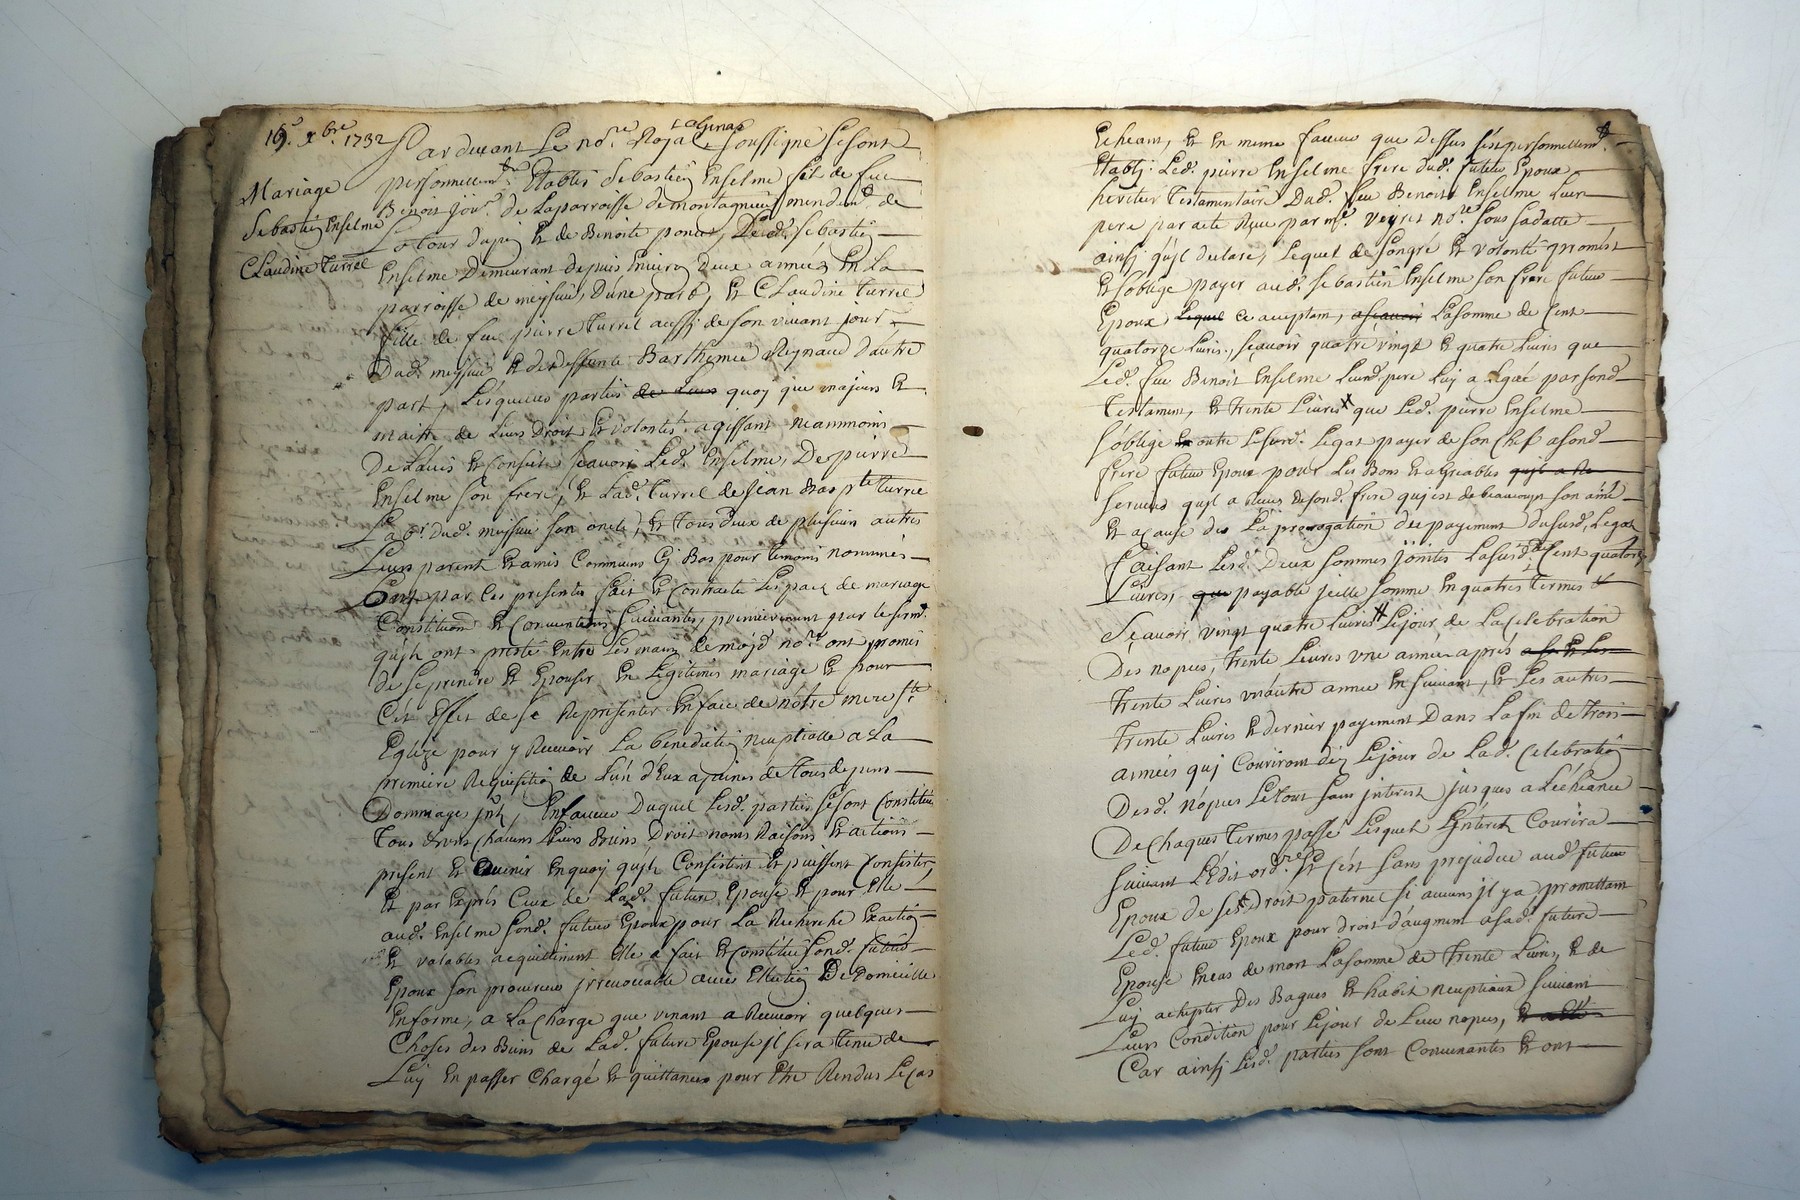 19e. xbre. 1732
Mariage
Sebastiẽ Enselme
Claudine Turrel
Par devant Le nore. Royal soussigné se sont
personnellemt. Etablis Sebastiẽ Enselme fils de feu
Benoit Jour. de Laparroisse de montagneux mendemt. de
La tour dupin Et de Benoite ponce, Led. sebastiẽ
Enselme Demeurant depuis Enuirõ Deux années En La
parroisse de meyssiés, Dune part, Et Claudine Turrel
fille de feu pierre Turrel aussy de son viuant jour.
Dud. meyssiés Et de deffunte Barthemie Reynaud d'autre
part, Lesquelles parties de Leurs quoy que majeurs Et
maitre de Leurs Droit Et volontés agissant Neanmoins
De L'avis Et Conseil sçauoir Led. Enselme, De pierre
Enselme son frere, Et Lad. Turrel de Jean Baspte Turrel
Labr. Dud. meyssiés son oncle, Et Tous deux de plusieurs autres
Leurs parent Et amis Communs Cy Bas pour Temoins nommés
Ont par Ces presentes fait Et Contracté Les pact de mariage
Constitutiõ Et Conventions suiuantes, premierement par le sermt.
qu'ils ont presté Entre Les mains de moyd nore. ont promis
de se prendre Et Epouser En Legitimes mariage Et pour
Cét Effet de se Representer En face de nôtre mere Ste
Eglize pour y Recevoir La benedictiõ nuptialle a La
premiere Requisitiõ de L'un d'Eux a peines de Tous depens
Dommages jnts, En faveur Duquel Lesd. parties se sont Constitués
Tous Deux Chacuns Leurs Biens Droit noms Raisons Et actions
present Et avenir En quoy qu'ils Consistent Et puissent Consister
Et par Exprés Ceux de Lad. future Epouse Et pour Elle
aud. Enselme sond. futur Epoux pour La Recherche Exactiõ
Et valables acquittement Elle a fait Et Constitué sond. futur
Epoux son procureur jrrevocable avec Electiõ De Domicille
En forme, a La Charge que venant a Recevoir quelques
Choses des Biens de Lad. future Epouse jl sera Tenu de
Luy En passer Chargé Et quittances pour Etre Rendus Le cas
Echeant, Et En meme faveur que Dessus s'est personnellemt.
Etably Led. pierre Enselme frere dud. futur Epoux
heritier Testamentaire Dud. feu Benoit Enselme Leur
pere par acte Reçu par me. Veyret nore. sous sa datte
ainsy qu'il declare, Lequel de son gré Et volonté promést
Et s'oblige payer aud. Sebastiẽ Enselme son frere futur
Epoux Lequel ce acceptant, a sçauoir La somme de Cent
quatorze Liures, sçauoir quatre vingt Et quatre Liures que
Led. feu Benoit Enselme Leurd. pere Luy a Legué par sond.
Testament, Et Trente Liures que Led. pierre Enselme
s'oblige En outre Lesurd. Legat payer de son Chef a sond.
frere futur Epoux pour Les Bons Et agreables qu'il a Re
services qu'jl a Reçus de sond. frere quj est de beaucoup son ainé
Et a cause de La prorogatiõn de payement Dusud. Legat
faisant Lesd. Deux sommes jointes La susd. de Cent quatorze
Liures, que payable jcelle somme En quatres Termes
Sçauoir vingt quatre Liures Le jour de La Celebration
Des nopces, Trente Liures une année aprés a La Et Les
Trente Liures vn autre année Ensuiuant, Et Les autres
Trente Liures Et dernier payement Dans La fin de Trois
années quj Couriront dez Le jour de Lad. Celebratiõ
Desd. Nopces Le Tout sans jnterest jusques a L'échéance
De chaques Termes passé Lesquel L'jnterét Courira
suivant L'Edit ordre. Et c'est sans prejudice aud. futur
Epoux de ses Droit paternel si aucuns jl y a promettant
Led. futur Epoux pour droit d'augment a sad. future
Epouse En cas de mort La somme de Trente Liures, Et de
Luy achepter Des Bagues Et habit nuptiaux suivant
Leurs Condition pour Le jour de Leur nopces, Et
Car ainsj Lesd. parties sont Convenantes Et ont